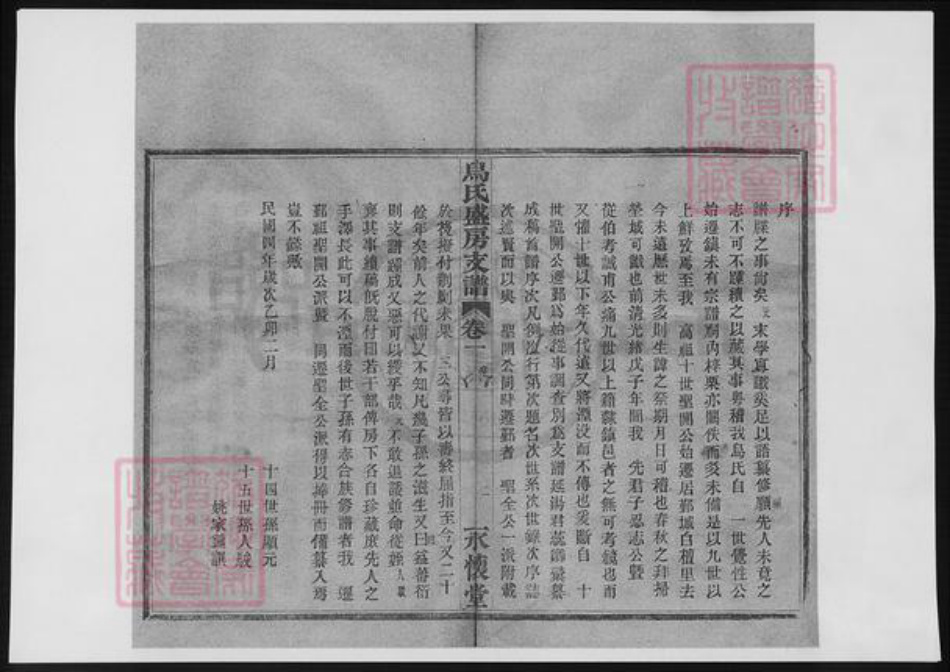 序
譜牒之事尙矣 元末學寡識奚足以語纂修顧先人未竟之
志不可不踵續之以蕆其事粤稽我烏氏自 一世覺性公
始遷鎮未有宗譜嗣內梓栗亦闕佚而爰未備是以九世以
上鮮攷焉至我 高祖十世聖開公始遷居鄞城白檀里去
今未遠歷世未多則生諱之祭期月日可稽也春秋之拜掃
塋域可識也前清光緒戊子年間我 先君子忍志公曁
從伯者誠甫公痛九世以上籍隸鎮邑者之無可考鏡也而
又懼十世以下年久代遠又將湮沒而不傳也爰斷自 十
世聖開公遷鄞為始從事調查別為支譜延湯君 纂
成稿首譜序次凡例次行第次題名次世系次世錄次序誌
次述賢而以與 聖開公同時遷鄞者 聖全公一派附載
烏氏盛房支譜 卷一 序 一 永懷堂
於後擬付剞劂未果 三公尋皆以壽終屈指至今又二十
餘年矣前人之代謝又不知凡幾子孫之滋生又日益蕃衍
則支譜踵成又惡可以緩乎哉 元不敢退諉並命從姪人
襄其事續稿旣殷付印若干部俾房下各自珍藏庶先人之
手澤長此可以不湮而後世子孫有志合族修譜者我 遷
鄞祖聖開公派曁 同遷聖全公派得以捧冊而備纂入焉
豈不懿歟
民國四年歲次乙卯二月
十四世孫顯元
十五世孫人
姚家 譔